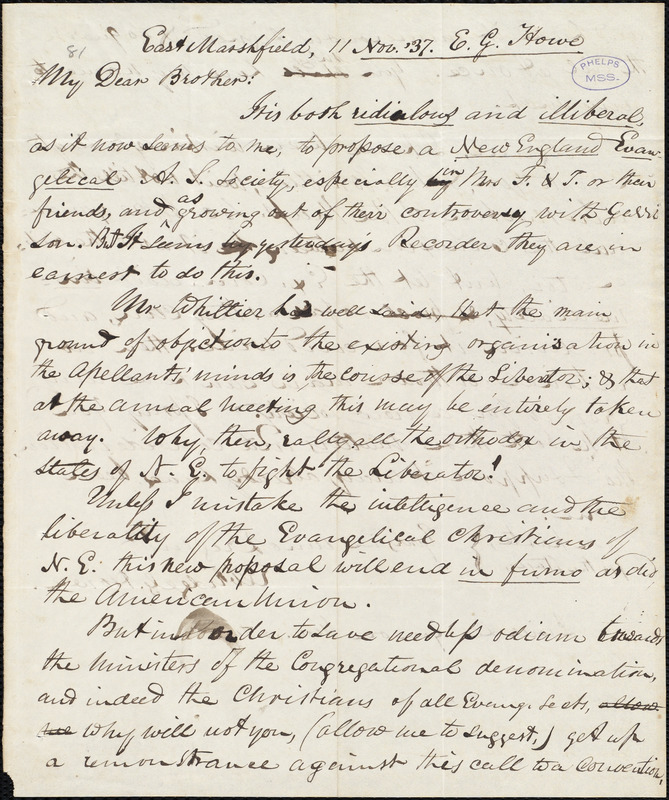 81
East Marshfield, 11 Nov. '37. E. G. Howe
PHELPS
MSS.
My Dear Brother!
It is both ridiulous and illiberal,
as it now seems to me, to propose a New England Evan
gelical A. S. Society, especially by in Mrs F. & T. or their
friends, and as growing out of their controversy with Garri
son. But It seems by yesterday's Recorder they are in
earnest to do this.
Mr Whittier has well said, that the main
ground of objection to the existing organisation in
the Apellants' minds is the course of the Liberator; & that
at the annual meeting this may be entirely taken
away. Why, then, rally all the orthodox in the
states of N. E. to fight the Liberator!
Unless I mistake the intelligence and the
liberality of the Evangelical Christians of
N. E. this new proposal will end in fumo as did
the American Union.
But in order to save needless odium towards
the ministers of the Congregational denomination,
and indeed the Christians of all Evang. sects, allow
me why will not you, (allow me to suggest,) get up
a remonstrance against this call to a Convention,